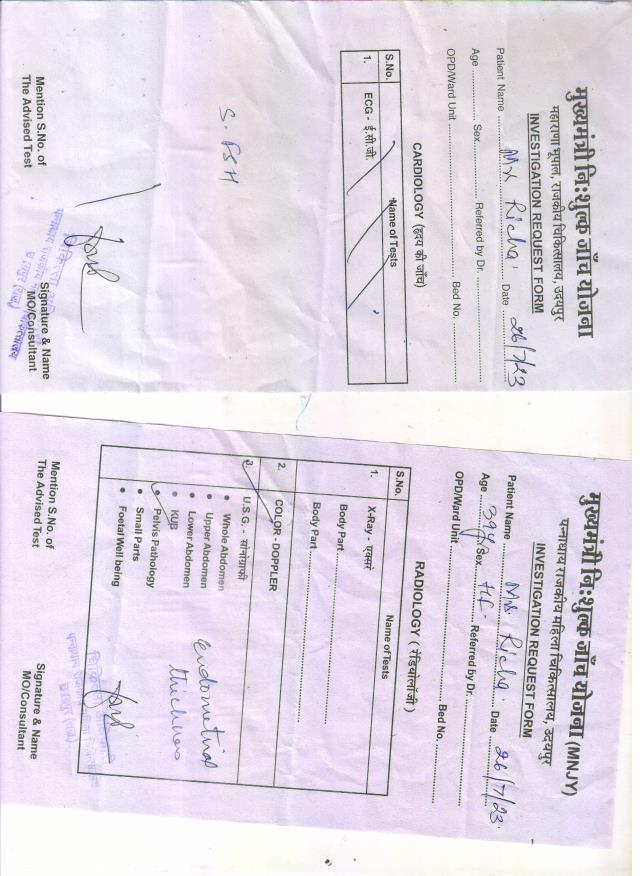 मुख्यमंत्री नि:शुल्क जाँच योजना
महाराणा भूपाल, राजकीय चिकित्सालय, उदयपुर
INVESTIGATION REQUEST FORM
Patient Name Mx Richa. Date 26/7/23
Age Sex Referred by Dr.
OPD/Ward Unit Bed No.
CARDIOLOGY (हृदय की जाँच)
S.No. Name of Tests
1. ECG - ई.सी.जी.
S. FSH
Mention S.No. of
The Advised Test
Signature & Name
MO/Consultant
मुख्यमंत्री नि:शुल्क जाँच योजना (MNJY)
पन्नाधाय राजकीय महिला चिकित्सालय, उदयपुर
INVESTIGATION REQUEST FORM
Patient Name Richa. Date 26/7/23.
Age 39y Sex Referred by Dr.
OPD/Ward Unit Bed No.
RADIOLOGY ( रेडियोलॉजी )
S.No. Name of Tests
1. X-Ray - एक्सरे
Body Part
Body Part
2. COLOR - DOPPLER
3. U.S.G. - सोनोग्राफी
• Whole Abdomen
• Upper Abdomen
• Lower Abdomen
• KUB
• Pelvis Pathology
• Small Parts
• Foetal Well being
Endometrial
thickness
Mention S.No. of
The Advised Test
Signature & Name
MO/Consultant